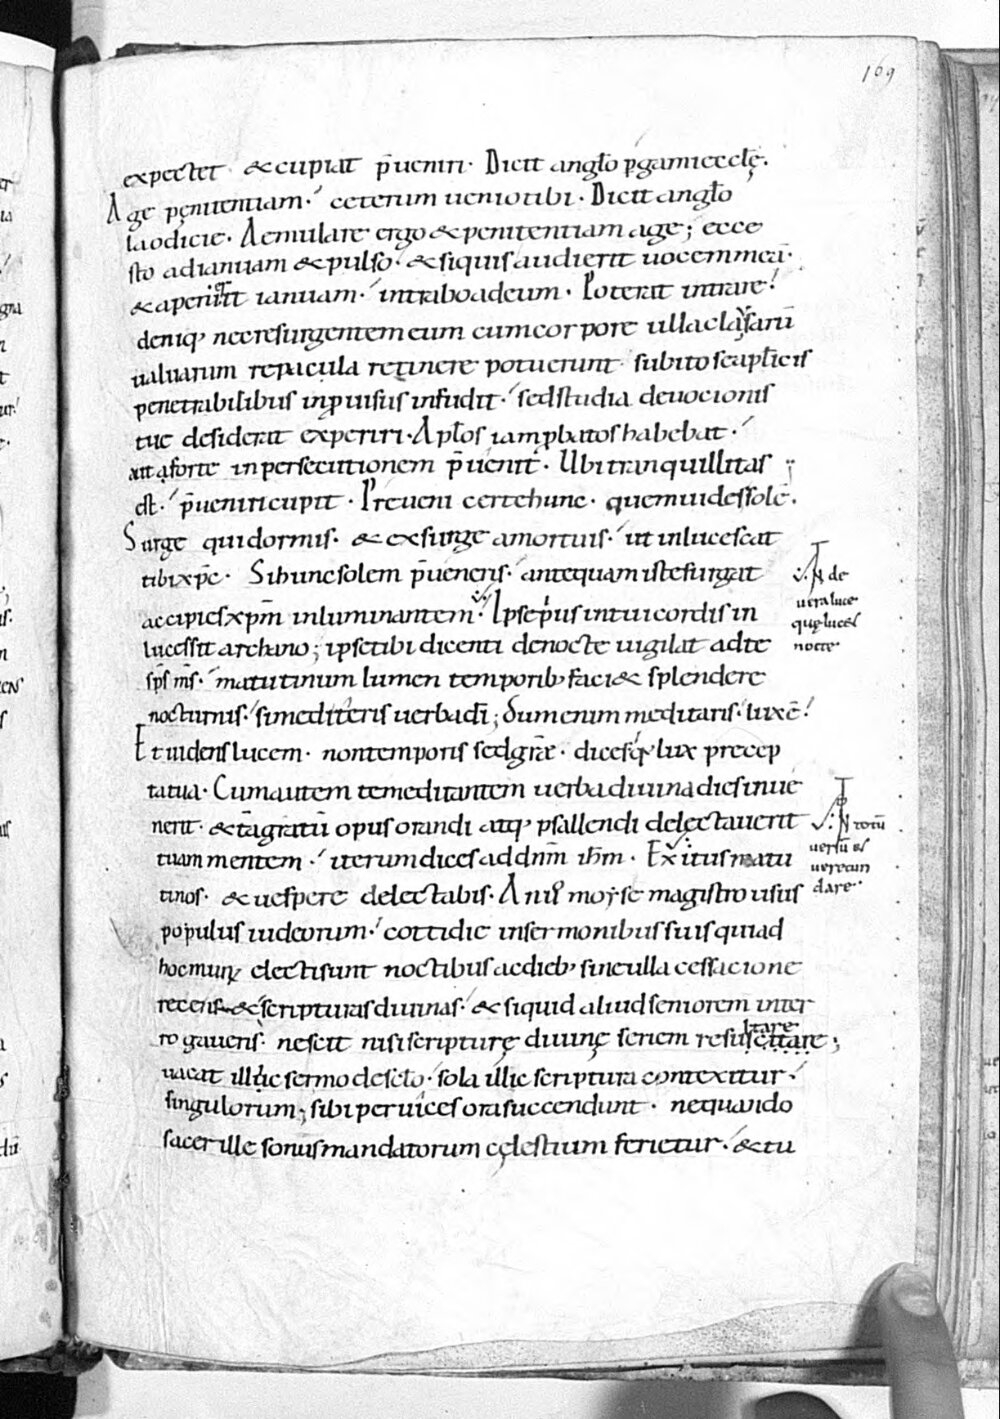 169
expectet · & cupiat p̄ueniri · Dicit angło p̱gami ęcclę̄.
Age pęnitentiam · ceterum uenio tibi · Dicit angło
laodicie · Aemulare ergo & penitentiam age ; ecce
sto ad ianuam & pulso · & siquis audierit uocem meā ·
& aperuerit ianuam · intrabo ad eum · Poterat intrare
deniq; nec resurgentem eum cum corpore ulla clausarū
ualuarum repacula retinere potuerunt · subito se apłicis
penetrabilibus inprouisus infudit · sed studia deuocionis
tuę desiderat experiri · Apłos iam probatos habebat ·
aut forte in persecutionem p̄uenit · Ubi tranquillitas
est · p̄ueniri cupit · Preueni certe hunc · quem uides solē .
Surge qui dormis · & exsurge a mortuis · ut inlucescat
tibi xp̄c · Si hunc solem p̄ueneris · antequam iste surgat
accipies xp̄m inluminantem · Ipse prius in tui cordis in
lucessit archano ; ipse tibi dicenti de nocte uigilat ad te
sp̄s m̄s · matutinum lumen temporib; faci& splendere
nocturnis · si mediteris uerba dī ; dum enim meditaris · lux ē
Et uidens lucem · non temporis sed grāe · dices q; lux precep
ta tua · Cum autem te meditantem uerba diuina dies inue
nerit · & tā gratū opus orandi atq; psallendi delectauerit
tuam mentem · iterum dices ad dn̄m ih̄m · Exitus matu
tinos · & uespere delectabis · A nr̄o moyse magistro usus
populus iudeorum · cottidie in sermonibus suis qui ad
hoc munus electi sunt noctibus ac dieb; sine ulla cessacione
recens& scripturas diuinas · & siquid aliud seniorem inter
rogaueris · nescit nisi scripturę diuinę seriem resuscitare ;
ltare
uacat illic sermo de sclo · sola illic scriptura contexitur ·
singulorum ; sibi per uices ora succendunt · ne quando
sacer ille sonus mandatorum cęlestium ferietur · & tu
N de
uera luce
quę lucet
nocte
N totū
uersū
uerecun
dare